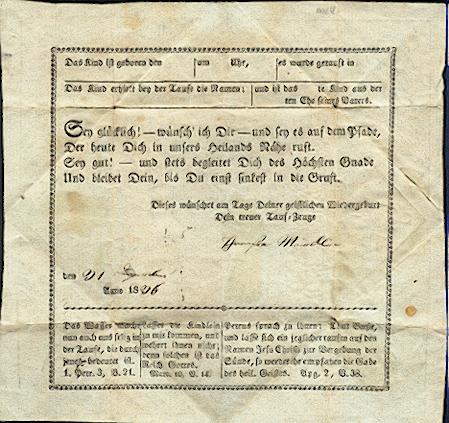 Das Kind ist geboren den um Uhr, es wurde getauft in
Das Kind erhielt bey der Taufe die Namen: und ist das te Kind aus der
ten Ehe seines Vaters.
Sey glücklich! — wünsch' ich Dir — und sey es auf dem Pfade,
Der heute Dich in unsers Heilands Nähe ruft.
Sey gut! — und stets begleitet Dich des Höchsten Gnade
Und bleibet Dein, bis Du einst sinkest in die Gruft.
Dieses wünschet am Tage Deiner geistlichen Wiedergeburt
Dein treuer Tauf-Zeuge
den 21
Anno 1836
Das Wasser macht
nun auch uns selig in
der Taufe, die durch
jenes bedeutet ist.
1. Petr. 3, V. 21.
Lasset die Kindlein
zu mir kommen, und
wehret ihnen nicht;
denn solchen ist das
Reich Gottes.
Marc. 10, V. 14.
Petrus sprach zu ihnen: Thut Buße,
und lasse sich ein jeglicher taufen auf den
Namen Jesu Christi zur Vergebung der
Sünde, so werdet ihr empfahen die Gabe
des heil. Geistes. Apg. 2, V. 38.